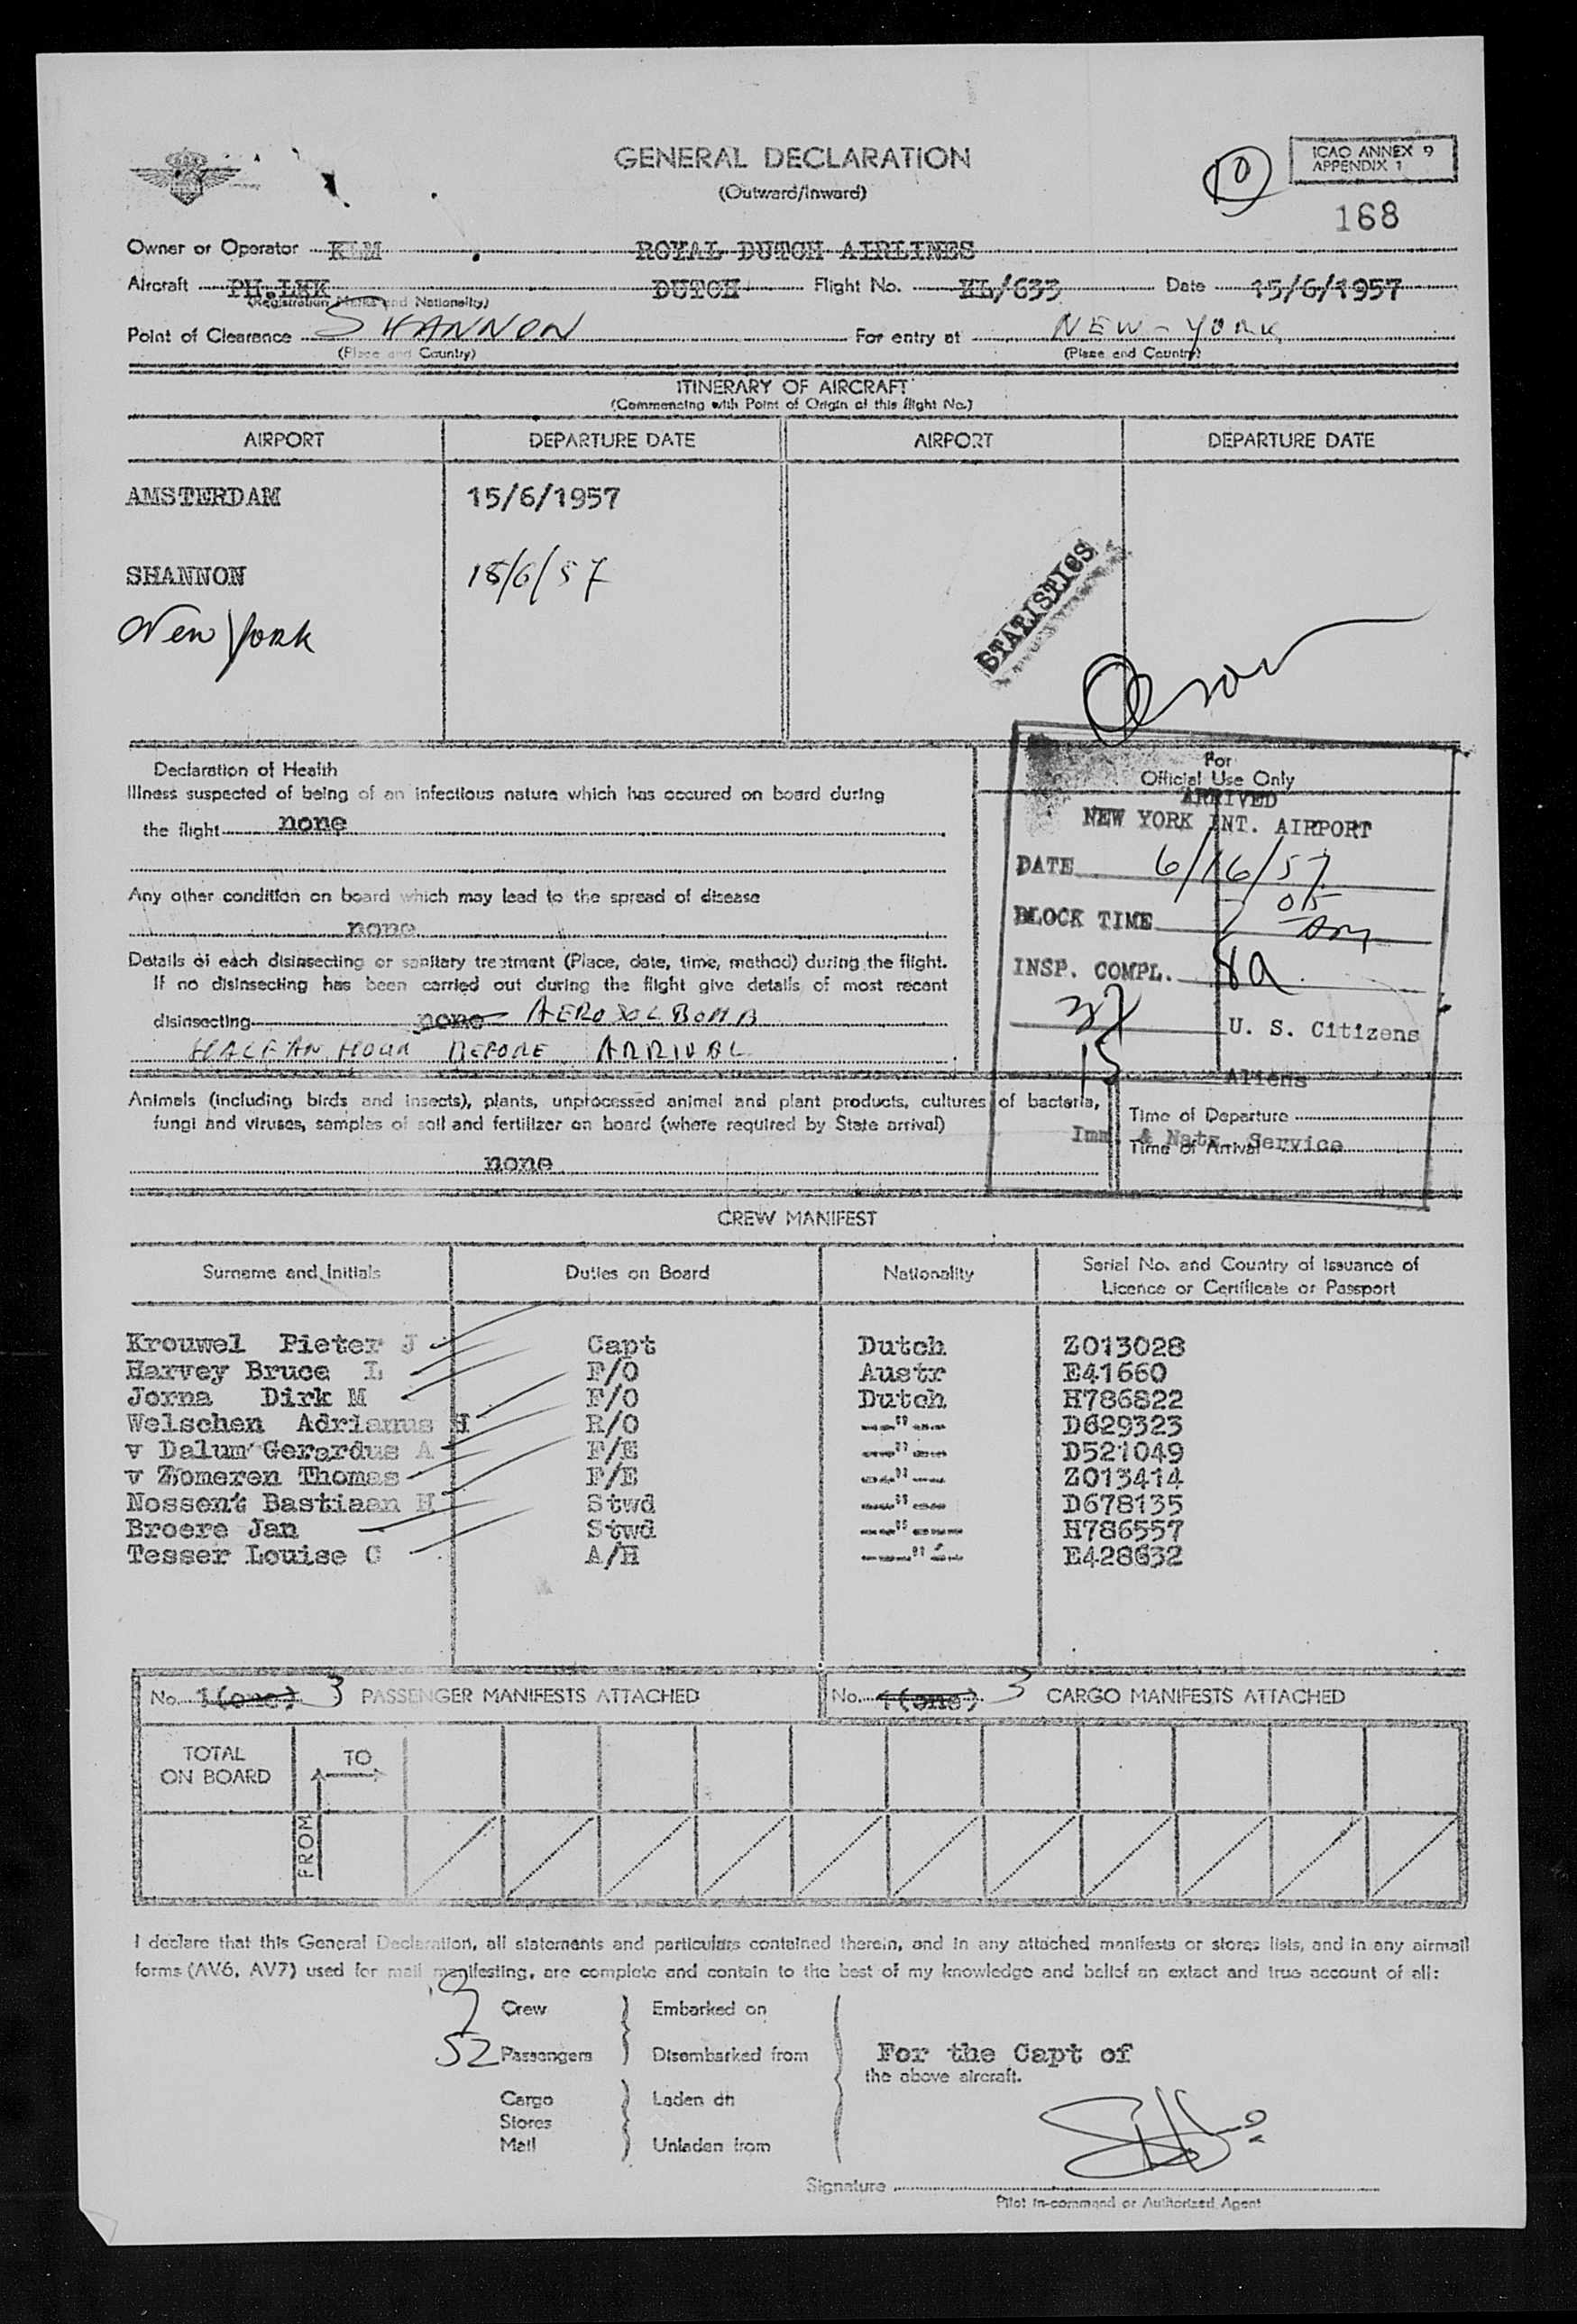 GENERAL DECLARATION
(Outward/Inward)
ICAO ANNEX 9
APPENDIX 1
168
Owner or Operator KLM ROYAL DUTCH AIRLINES
Aircraft PH.LKK DUTCH Flight No. KL/633 Date 15/6/1957
(Registration Marks and Nationality)
Point of Clearance SHANNON For entry at NEW-YORK
(Place and Country) (Place and Country)
ITINERARY OF AIRCRAFT
(Commencing with Point of Origin of this flight No.)
AIRPORT DEPARTURE DATE AIRPORT DEPARTURE DATE
AMSTERDAM 15/6/1957
SHANNON 15/6/57
New York
STATISTICS
Declaration of Health
Illness suspected of being of an infectious nature which has occured on board during
the flight none
Any other condition on board which may lead to the spread of disease
none
Details of each disinsecting or sanitary treatment (Place, date, time, method) during the flight.
If no disinsecting has been carried out during the flight give details of most recent
disinsecting none AEROSOL BOMB
HALF AN HOUR BEFORE ARRIVAL
For
Official Use Only
ARRIVED
NEW YORK INT. AIRPORT
DATE 6/16/57
BLOCK TIME 7 05 Am
INSP. COMPL. 8a
37 U. S. Citizens
15 Aliens
Imm. & Natz. Service
Time of Departure
Time of Arrival
Animals (including birds and insects), plants, unprocessed animal and plant products, cultures of bacteria,
fungi and viruses, samples of soil and fertilizer on board (where required by State arrival)
none
CREW MANIFEST
Surname and Initials Duties on Board Nationality Serial No. and Country of Issuance of
Licence or Certificate or Passport
Krouwel Pieter J Capt Dutch Z013028
Harvey Bruce L F/O Austr E41660
Jorna Dirk M F/O Dutch H786822
Welschen Adrianus H R/O --"-- D629323
v Dalum Gerardus A F/E --"-- D521049
v Zomeren Thomas F/E --"-- Z013414
Nossent Bastiaan H Stwd --"-- D678135
Broere Jan Stwd --"-- H786557
Tesser Louise C A/H --"-- E428632
No. 1(one) 3 PASSENGER MANIFESTS ATTACHED No. 1(one) 3 CARGO MANIFESTS ATTACHED
TOTAL
ON BOARD
TO
FROM
I declare that this General Declaration, all statements and particulars contained therein, and in any attached manifests or stores lists, and in any airmail
forms (AV6, AV7) used for mail manifesting, are complete and contain to the best of my knowledge and belief an extact and true account of all:
9 Crew Embarked on
52 Passengers Disembarked from
For the Capt of
the above aircraft.
Cargo Laden on
Stores
Mail Unladen from
Signature
Pilot in-command or Authorized Agent